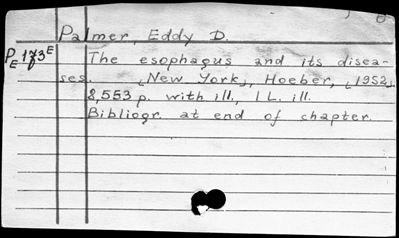 Palmer, Eddy D.
PE 173E The esophagus and its disea-
ses. [New York], Hoeber, [1952].
8,553 p. with ill., 1 L. ill.
Bibliogr. at end of chapter.